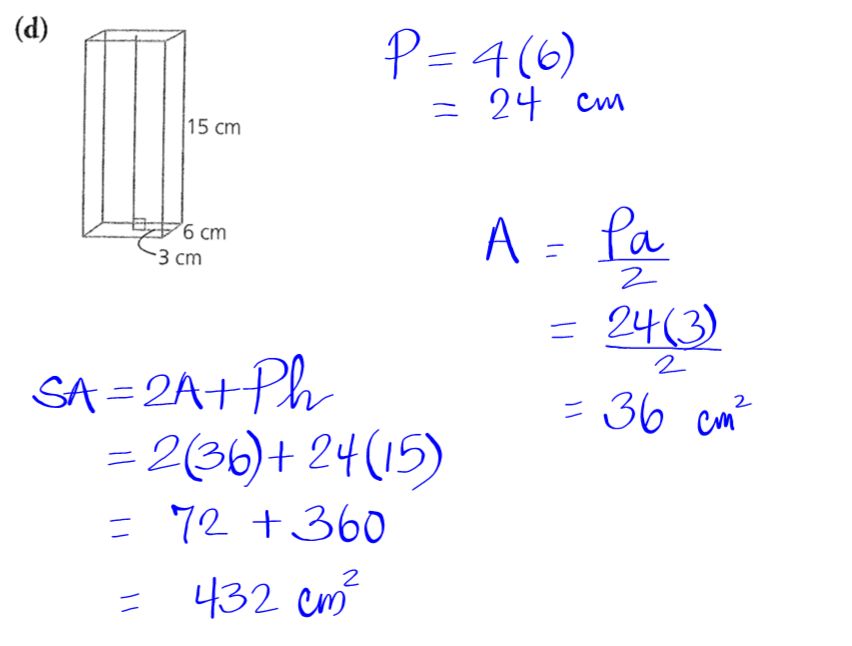 (d)
15 cm
6 cm
3 cm
P = 4(6)
= 24 cm
A = Pa/2
= 24(3)/2
= 36 cm²
SA = 2A + Ph
= 2(36) + 24(15)
= 72 + 360
= 432 cm²